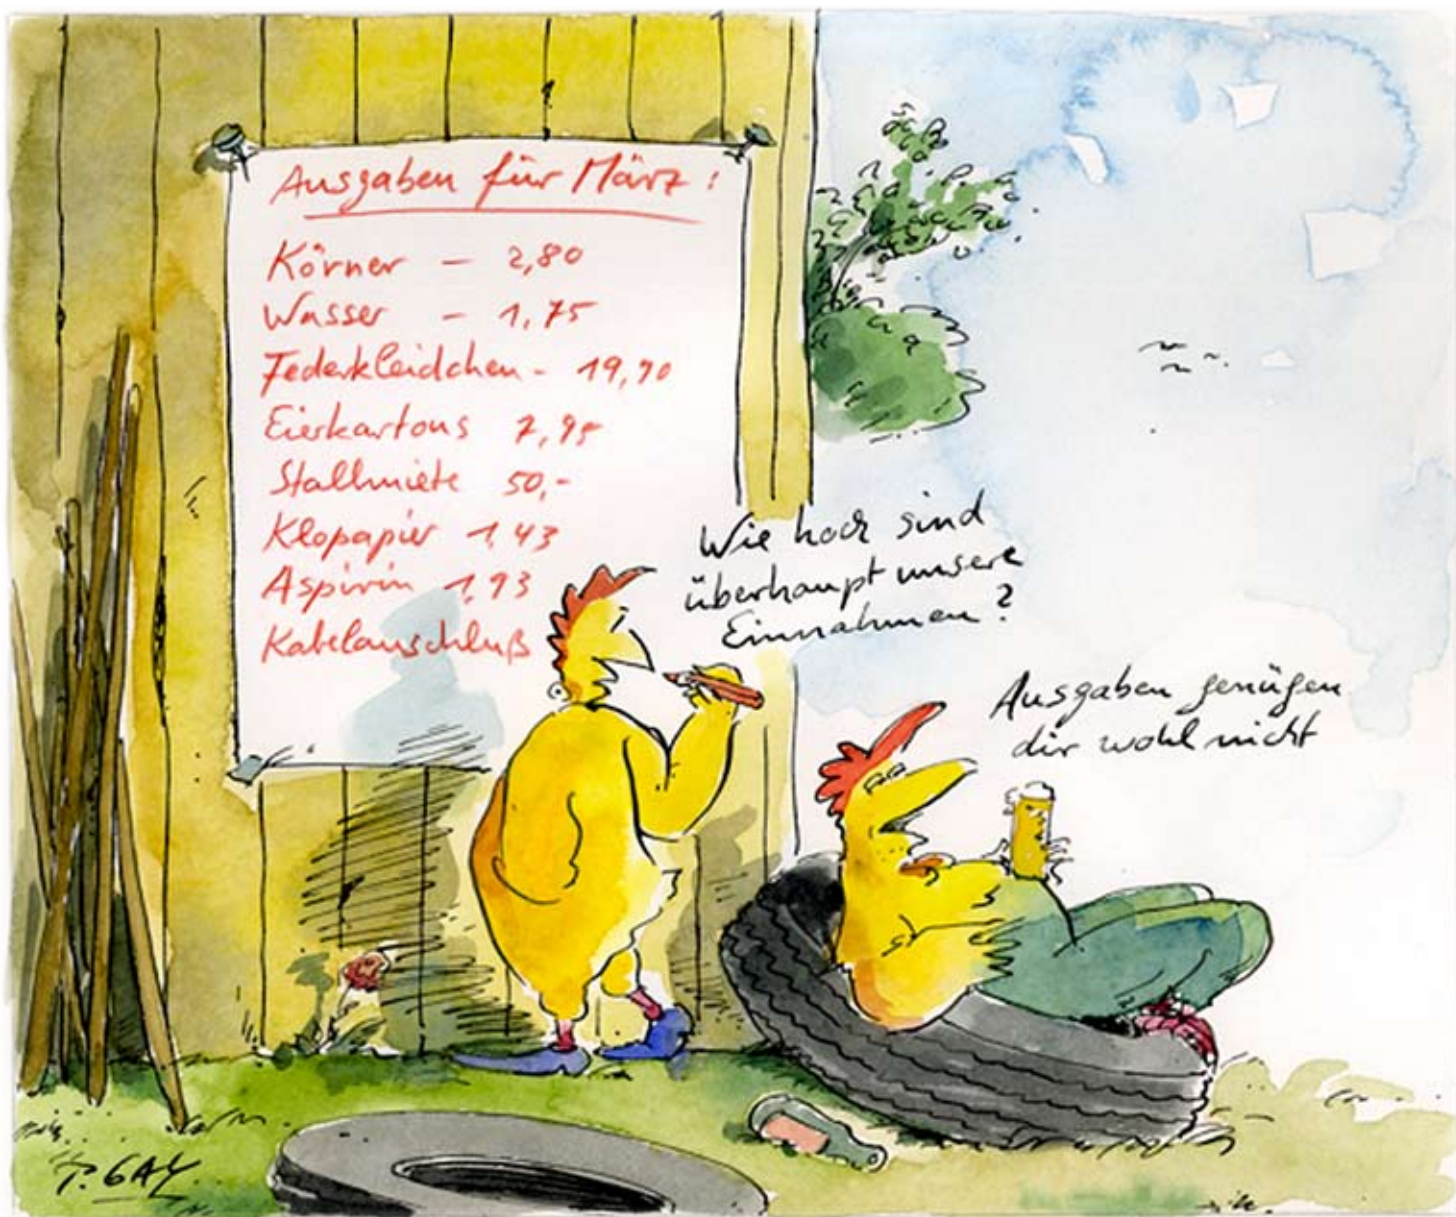 Ausgaben für März:
Körner - 2,80
Wasser - 1,75
Federkleidchen - 19,90
Eierkartons 7,95
Stallmiete 50,-
Klopapier 1,43
Aspirin 1,93
Kabelanschluß
Wie hoch sind
überhaupt unsere
Einnahmen?
Ausgaben genügen
dir wohl nicht
P. GAY